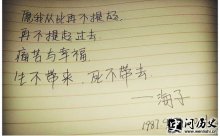 愿我从此再不提起
再不提起过去
痛苦与幸福
生不带来 死不带去
——海子
1987.
史问历史